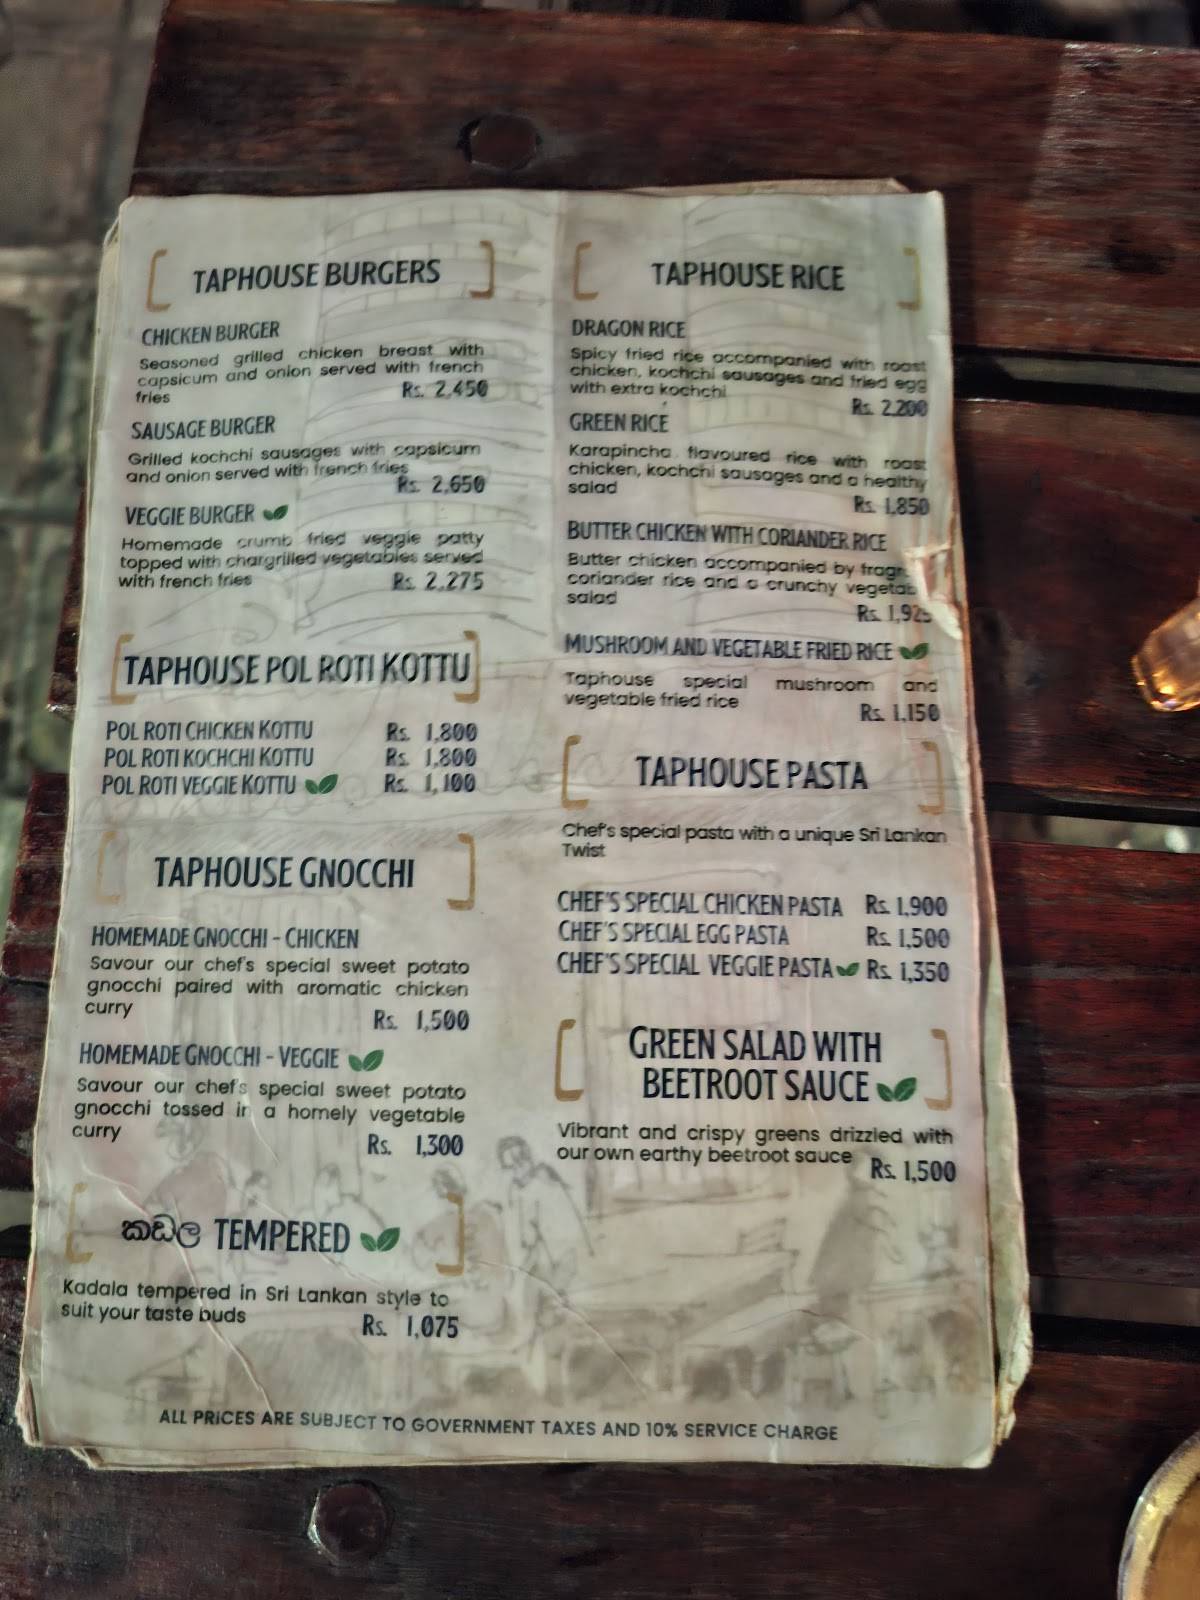 TAPHOUSE BURGERS
CHICKEN BURGER
Seasoned grilled chicken breast with
capsicum and onion served with french
fries
Rs. 2,450
SAUSAGE BURGER
Grilled kochchi sausages with capsicum
and onion served with french fries
Rs. 2,650
VEGGIE BURGER
Homemade crumb fried veggie patty
topped with chargrilled vegetables served
with french fries
Rs. 2,275
TAPHOUSE POL ROTI KOTTU
POL ROTI CHICKEN KOTTU Rs. 1,800
POL ROTI KOCHCHI KOTTU Rs. 1,800
POL ROTI VEGGIE KOTTU Rs. 1,100
TAPHOUSE GNOCCHI
HOMEMADE GNOCCHI - CHICKEN
Savour our chef's special sweet potato
gnocchi paired with aromatic chicken
curry
Rs. 1,500
HOMEMADE GNOCCHI - VEGGIE
Savour our chef's special sweet potato
gnocchi tossed in a homely vegetable
curry
Rs. 1,300
කඩල TEMPERED
Kadala tempered in Sri Lankan style to
suit your taste buds
Rs. 1,075
TAPHOUSE RICE
DRAGON RICE
Spicy fried rice accompanied with roast
chicken, kochchi sausages and fried egg
with extra kochchi
Rs. 2,200
GREEN RICE
Karapincha flavoured rice with roast
chicken, kochchi sausages and a healthy
salad
Rs. 1,850
BUTTER CHICKEN WITH CORIANDER RICE
Butter chicken accompanied by
coriander rice and a crunchy
salad
Rs. 1,925
MUSHROOM AND VEGETABLE FRIED RICE
Taphouse special mushroom and
vegetable fried rice
Rs. 1,150
TAPHOUSE PASTA
Chef's special pasta with a unique Sri Lankan
Twist
CHEF'S SPECIAL CHICKEN PASTA Rs. 1,900
CHEF'S SPECIAL EGG PASTA Rs. 1,500
CHEF'S SPECIAL VEGGIE PASTA Rs. 1,350
GREEN SALAD WITH
BEETROOT SAUCE
Vibrant and crispy greens drizzled with
our own earthy beetroot sauce
Rs. 1,500
ALL PRICES ARE SUBJECT TO GOVERNMENT TAXES AND 10% SERVICE CHARGE